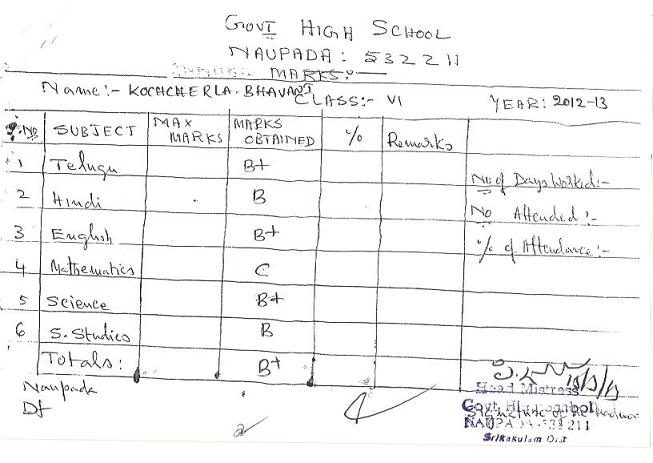 GOVT HIGH SCHOOL
NAUPADA: 532211
MARKS:-
Name:- KOCHCHERLA. BHAVANI CLASS:- VI YEAR: 2012-13
S.NO SUBJECT MAX MARKS MARKS OBTAINED % Remarks
1 Telugu B+
2 Hindi B
3 English B+
4 Mathematics C
5 Science B+
6 S. Studies B
Totals: B+
No of Days Worked:-
No Attended:-
% of Attendance:-
Naupada
Dt
Head Mistress
Govt. High School
Signature of the
NAUPADA-532 211
Srikakulam Dist